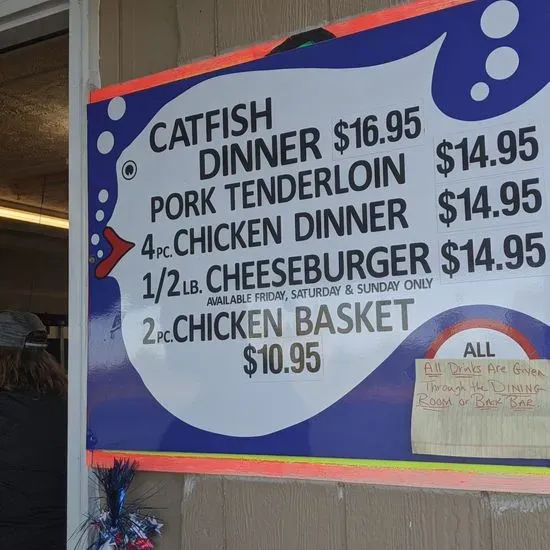 CATFISH
DINNER $16.95
PORK TENDERLOIN $14.95
4 PC. CHICKEN DINNER $14.95
1/2 LB. CHEESEBURGER $14.95
AVAILABLE FRIDAY, SATURDAY & SUNDAY ONLY
2 PC. CHICKEN BASKET
$10.95
ALL
All Drinks Are Given
Through the DINING
ROOM or BACK BAR